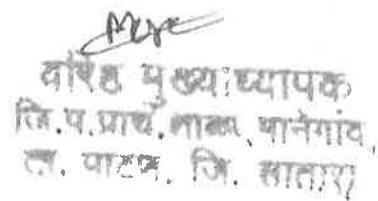 वरिष्ठ मुख्याध्यापक
जि.प.प्राथ. शाळा, मानेगांव,
ता. पाटण, जि. सातारा